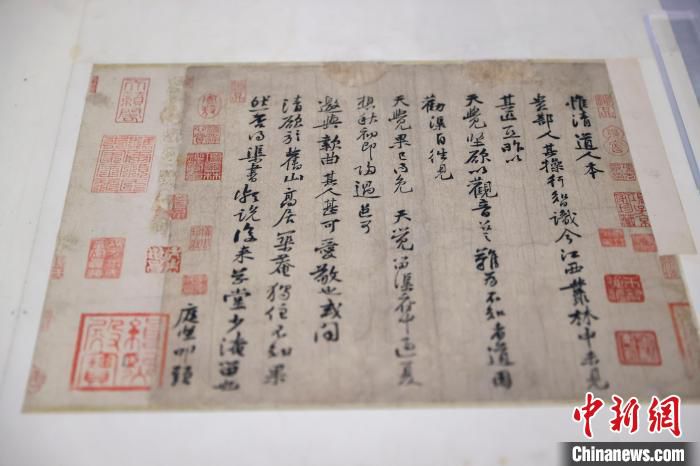 惟清道人本
貴部人其操行智識今江西叢林中未見
其匹亟昨以
天覺堅欲以觀音召之難為不知者道因
勸渠自往見
天覺果已得免天覺留渠府中過夏
想秋初即歸過邑可
邀與款曲其人甚可愛敬也或問
清欲於舊山高居築庵獨住不知果
然否得渠書頗說後來草堂少淹留也
庭堅叩頭
中新網
Chinanews.com